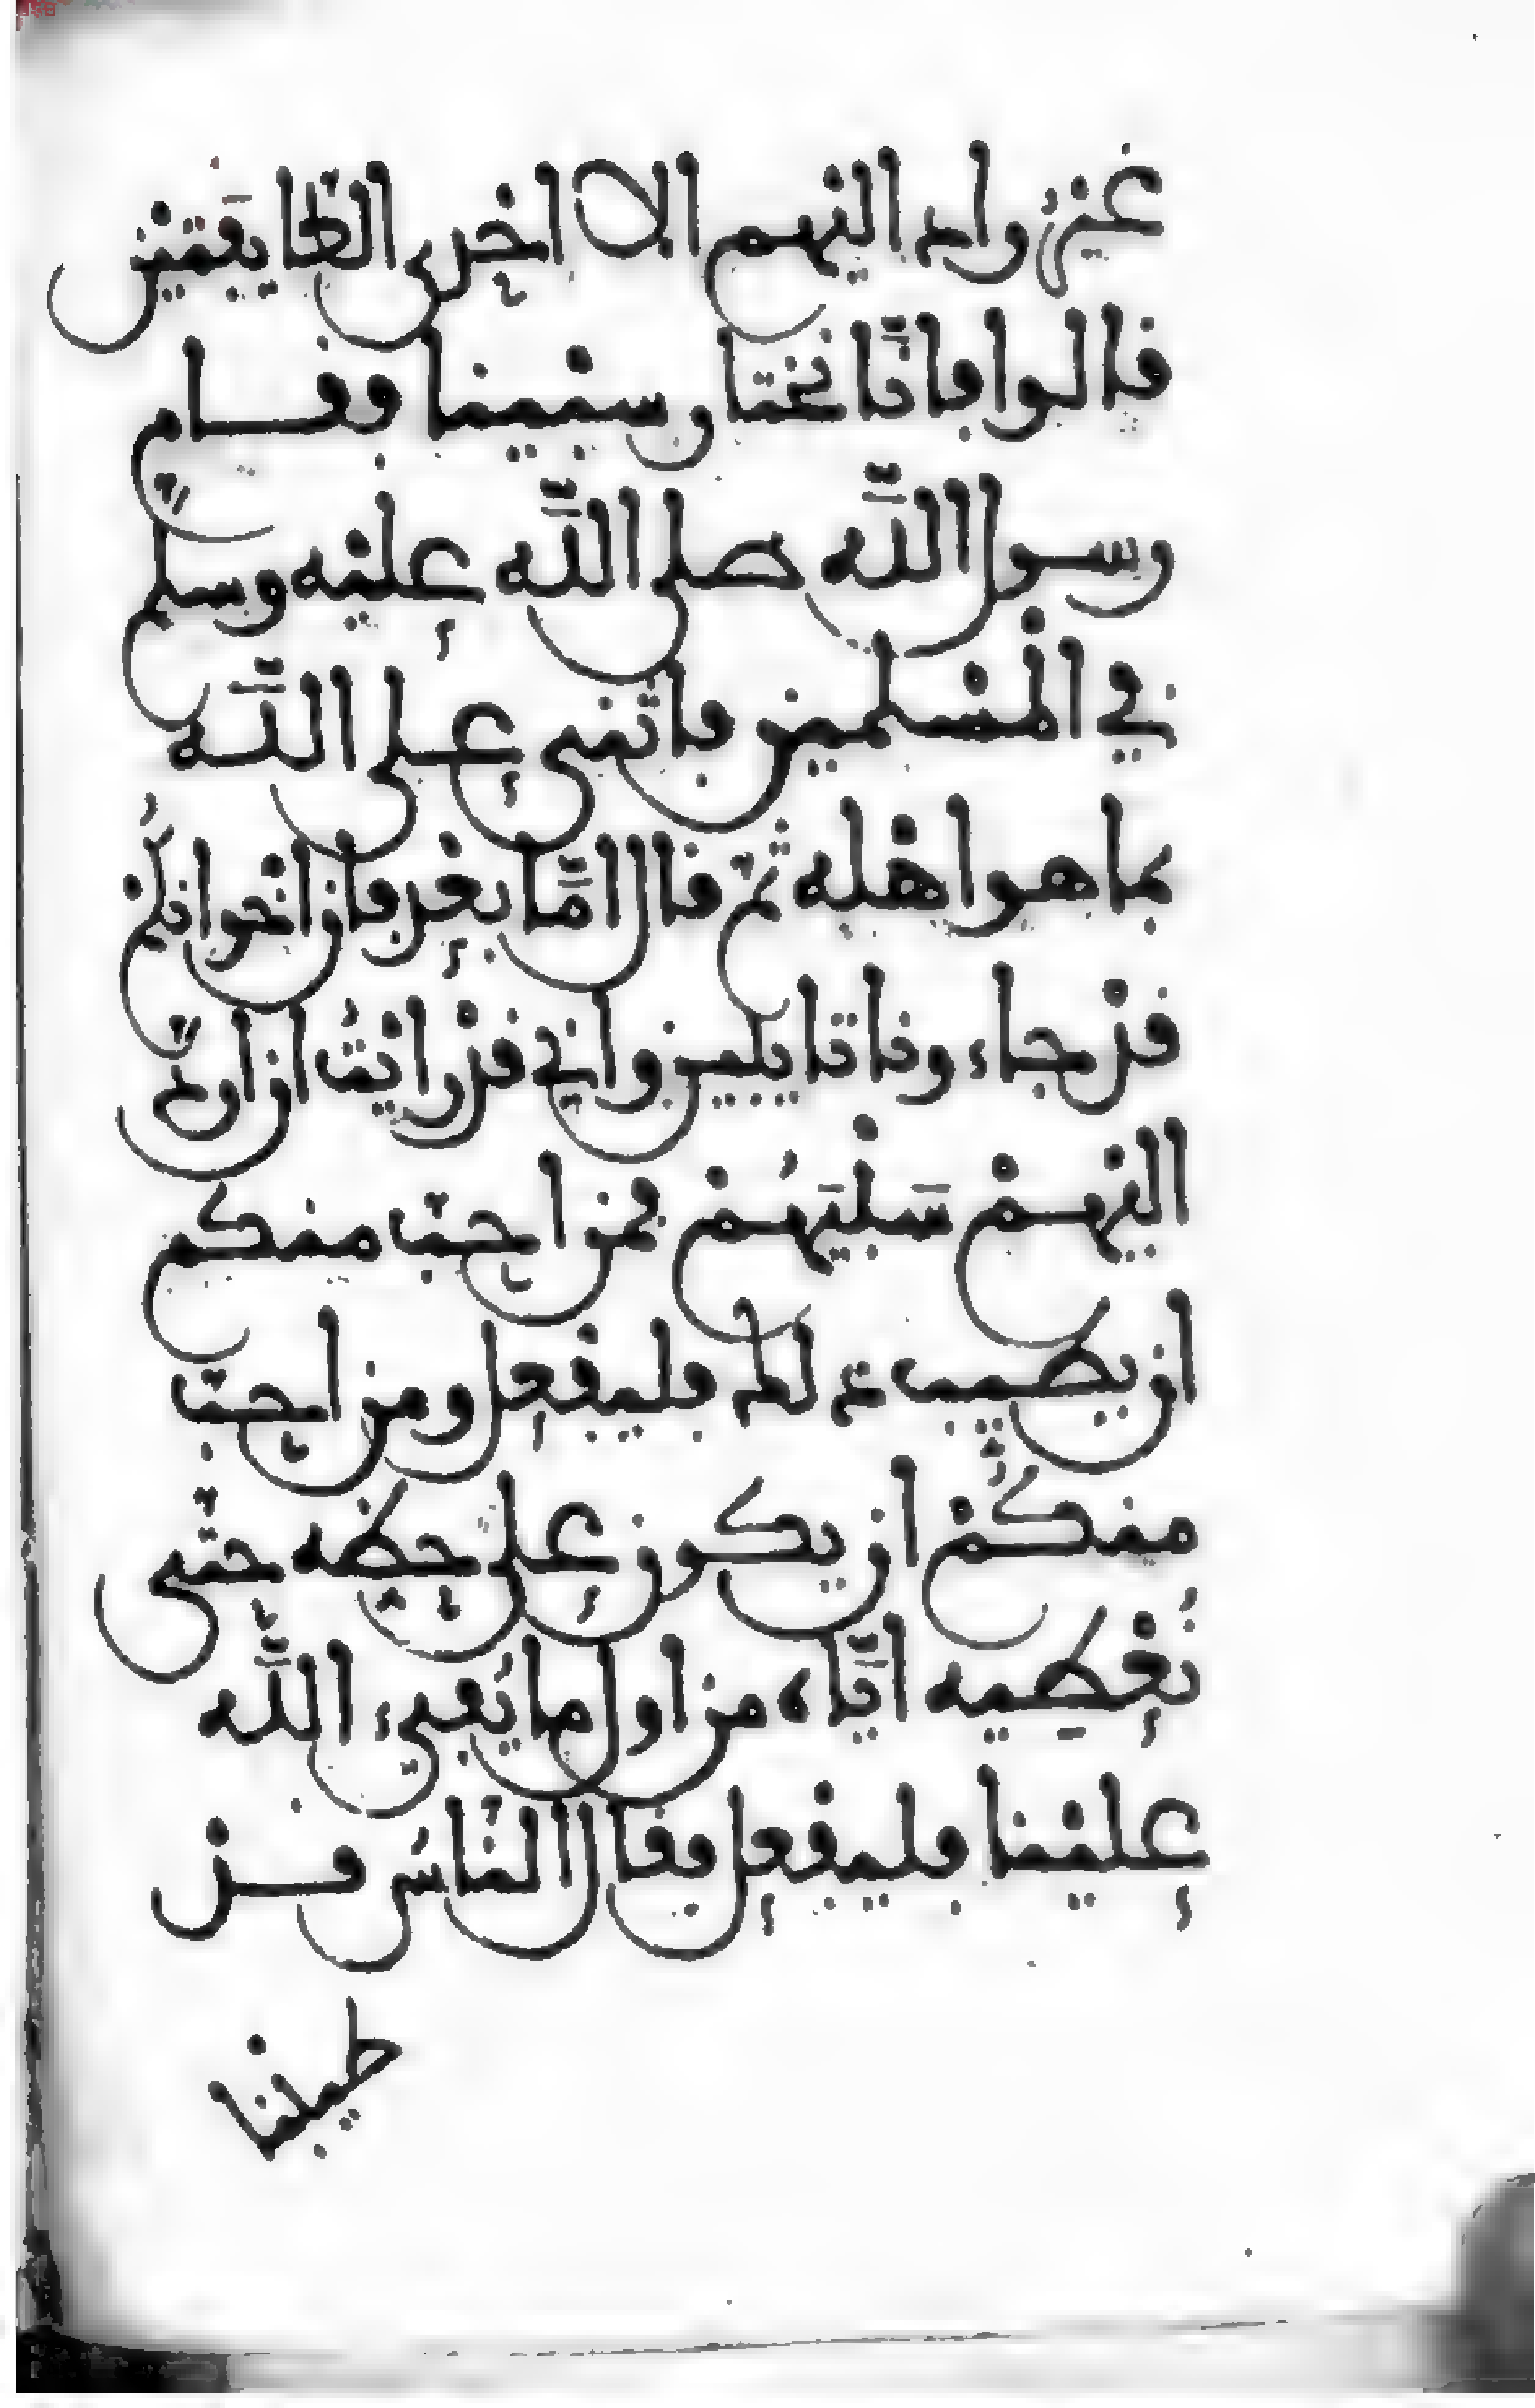 غير راد اليهم الا احدى الطايفتين
قالوا فانا نختار سبينا فقام
رسول الله صلى الله عليه وسلم
في المسلمين فاثنى على الله
بما هو اهله ثم قال اما بعد فان اخوانكم
قد جاءونا تايبين واني قد رايت ان ارد
اليهم سبيهم فمن احب منكم
ان يطيب ذلك فليفعل ومن احب
منكم ان يكون على حظه حتى
نعطيه اياه من اول ما يفيء الله
علينا فليفعل فقال الناس قد
طيبنا